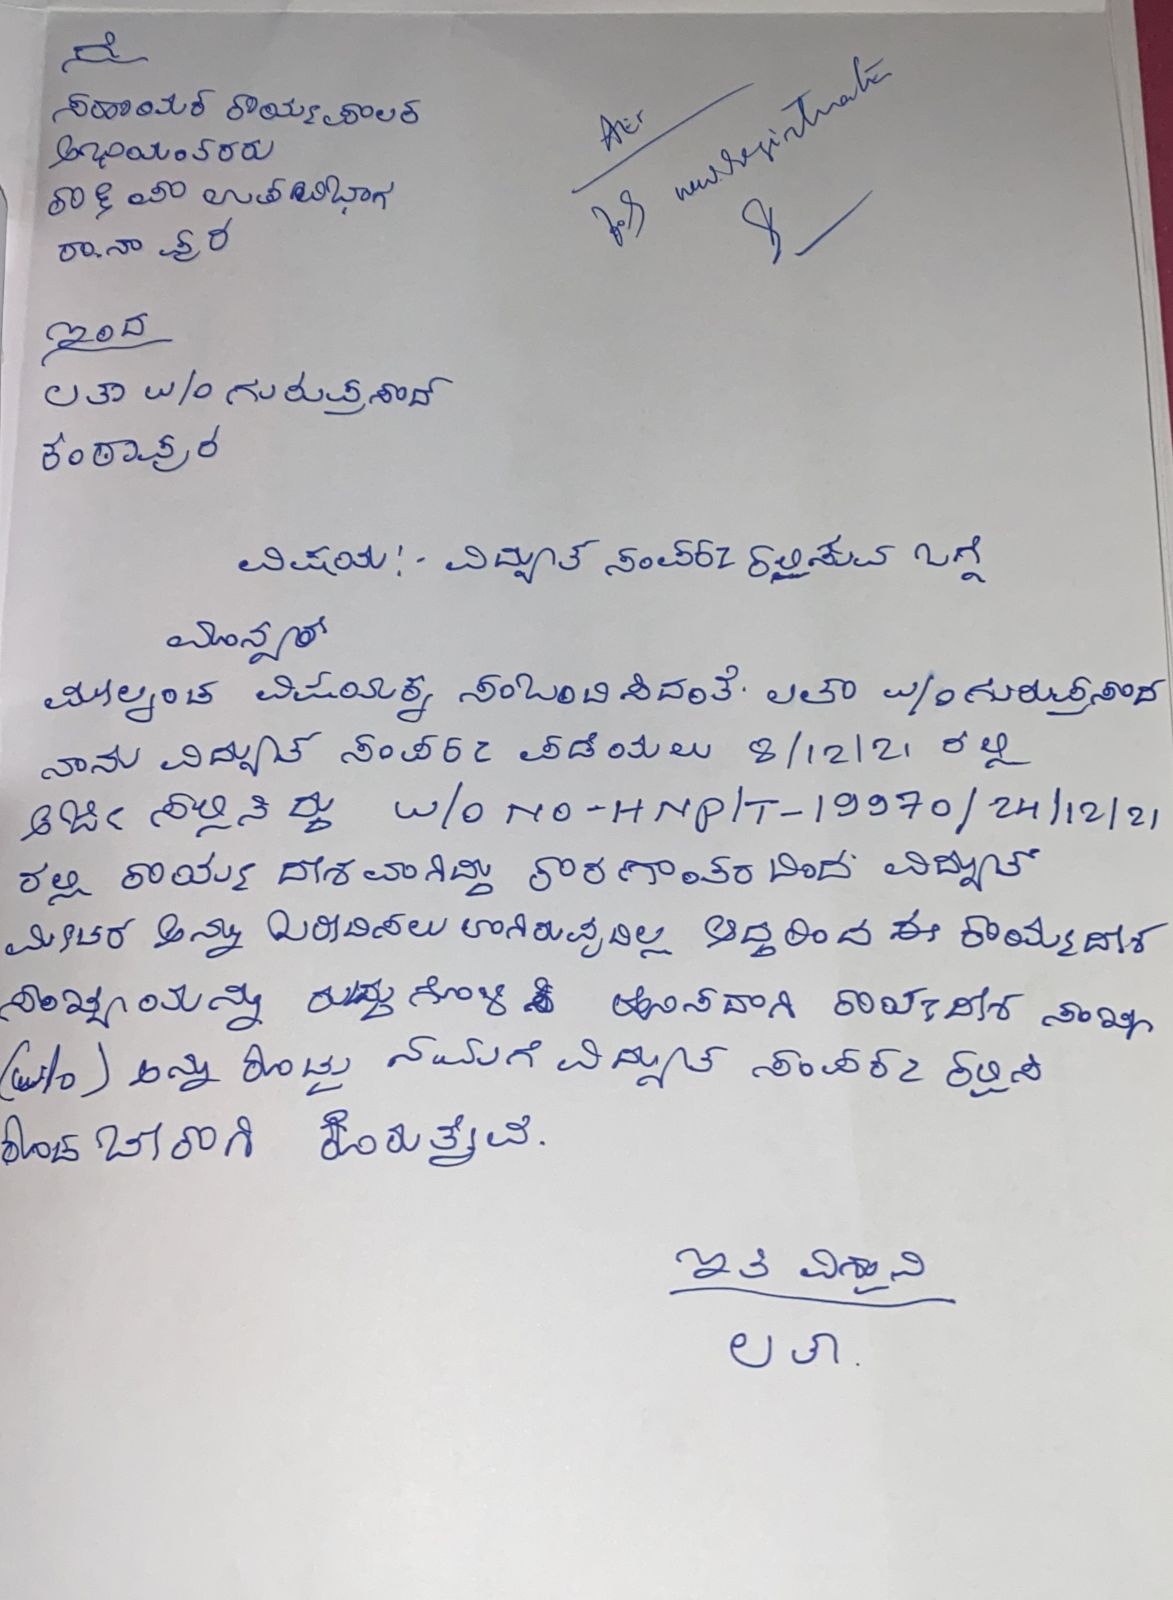 ರೆ
ಸಹಾಯಕ ಕಾರ್ಯಪಾಲಕ
ಅಭಿಯಂತರರು
ಕಾ ಮತ್ತು ಪಾ ಉಪವಿಭಾಗ
ರಾ.ನಾ ಪುರ
AEE
for new registration
ಇಂದ
ಲತಾ W/O ಗುರುಪ್ರಸಾದ್
ಕಂಠಾಪುರ
ವಿಷಯ:- ವಿದ್ಯುತ ಸಂಪರ್ಕ ಕಲ್ಪಿಸುವ ಬಗ್ಗೆ
ಮಾನ್ಯರೇ
ಮೇಲ್ಕಂಡ ವಿಷಯಕ್ಕೆ ಸಂಬಂಧಿಸಿದಂತೆ. ಲತಾ W/O ಗುರುಪ್ರಸಾದ
ನಾನು ವಿದ್ಯುತ್ ಸಂಪರ್ಕ ಪಡೆಯಲು 8/12/21 ರಲ್ಲಿ
ಅರ್ಜಿ ಸಲ್ಲಿಸಿದ್ದು W/O NO-HNP/T-19970/24/12/21
ರಲ್ಲಿ ಕಾರ್ಯಾದೇಶವಾಗಿದ್ದು ಕಾರಣಾಂತರದಿಂದ ವಿದ್ಯುತ್
ಮೀಟರ ಅನ್ನು ಖರೀದಿಸಲು ಆಗಿರುವುದಿಲ್ಲ ಆದ್ದರಿಂದ ಈ ಕಾರ್ಯಾದೇಶ
ಸಂಖ್ಯೆಯನ್ನು ರದ್ದುಗೊಳಿಸಿ ಹೊಸದಾಗಿ ಕಾರ್ಯಾದೇಶ ಸಂಖ್ಯೆ
(W/O) ಅನ್ನು ಕೊಟ್ಟು ನಮಗೆ ವಿದ್ಯುತ್ ಸಂಪರ್ಕ ಕಲ್ಪಿಸಿ
ಕೊಡಬೇಕಾಗಿ ಕೋರುತ್ತೇವೆ.
ಇತಿ ವಿಶ್ವಾಸಿ
ಲತಾ.